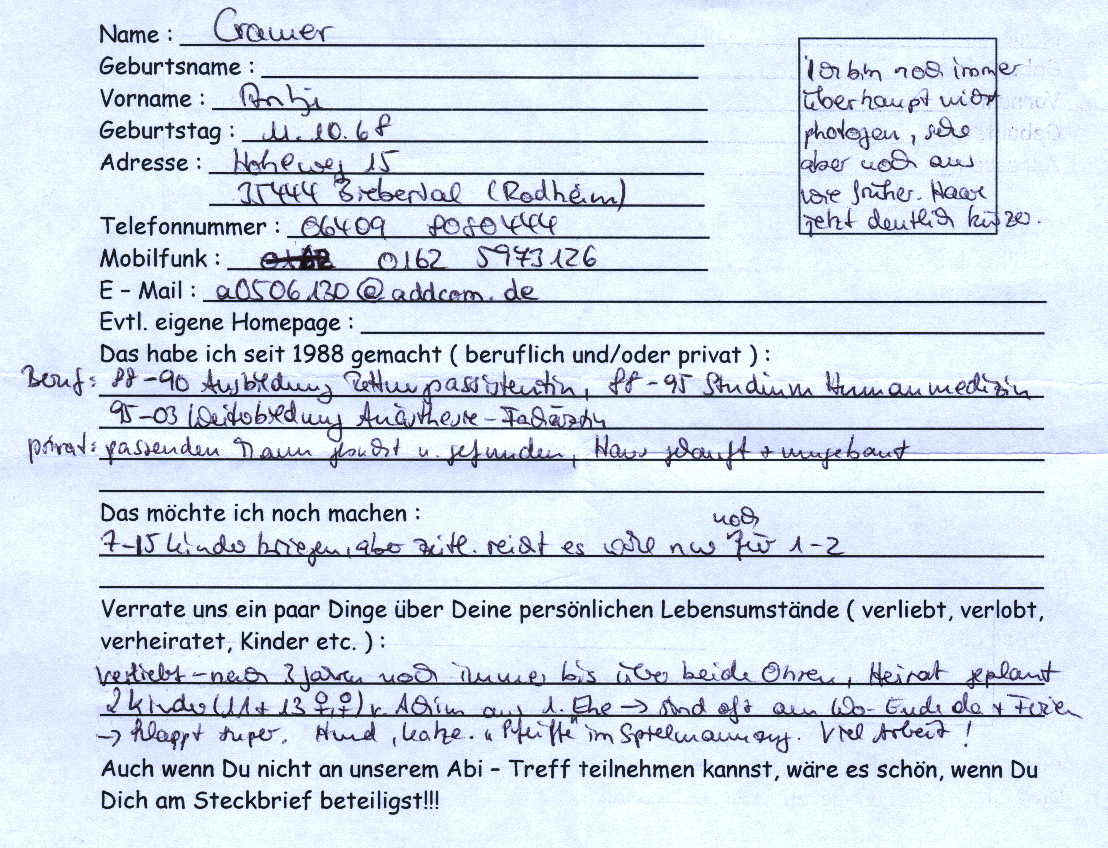 Name : Cramer
Geburtsname :
Vorname : Antje
Geburtstag : 11.10.68
Adresse : Hohlweg 15
35444 Biebertal (Rodheim)
Telefonnummer : 06409 8080444
Mobilfunk : 0162 0162 5973126
E – Mail : a0506130@addcom.de
Evtl. eigene Homepage :
Ich bin noch immer
überhaupt nicht
photogen, sehe
aber noch aus
wie früher. Haare
jetzt deutlich kürzer.
Das habe ich seit 1988 gemacht ( beruflich und/oder privat ) :
Beruf: 88-90 Ausbildung Rettungsassistentin, 88-95 Studium Humanmedizin
95-03 Weiterbildung Anästhesie-Fachärztin
privat: passenden Mann gesucht u. gefunden, Haus gekauft + umgebaut
Das möchte ich noch machen :
7-15 Kinder kriegen, aber zeitl. reicht es wohl nur noch für 1-2
Verrate uns ein paar Dinge über Deine persönlichen Lebensumstände ( verliebt, verlobt,
verheiratet, Kinder etc. ) :
verliebt – nach 3 Jahren noch immer bis über beide Ohren, Heirat geplant
2 Kinder (11 + 13 ♀,♀) v. Achim aus 1. Ehe → sind oft am Wo-Ende da + Ferien
→ klappt super. Hund, Katze. "Pfeiffe" im Spielmannszug. Viel Arbeit!
Auch wenn Du nicht an unserem Abi – Treff teilnehmen kannst, wäre es schön, wenn Du
Dich am Steckbrief beteiligst!!!